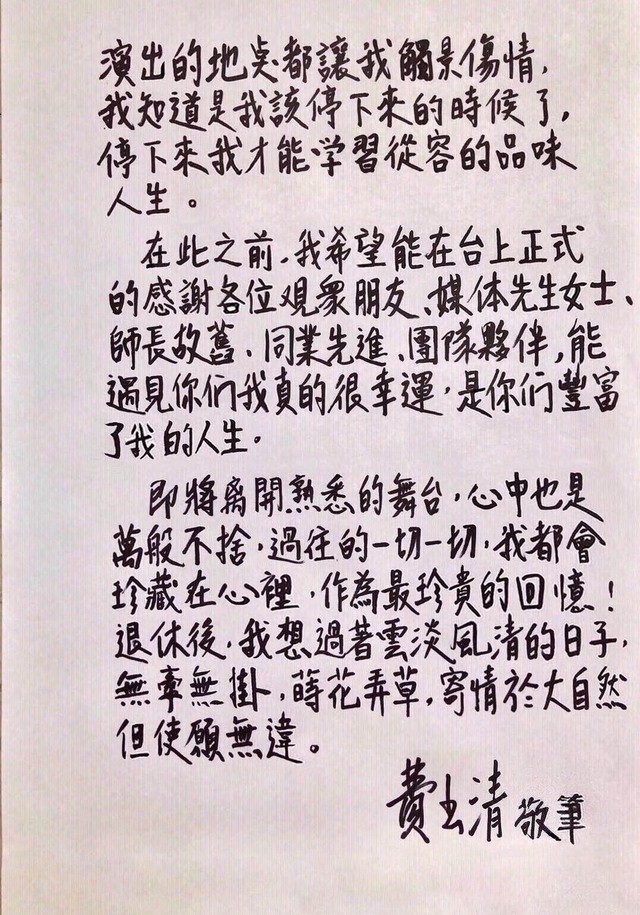 演出的地点都讓我觸景傷情,
我知道是我該停下來的時候了,
停下來我才能学習從容的品味
人生。
在此之前,我希望能在台上正式
的感謝各位观衆朋友、媒体先生女士、
師長故舊、同業先進、團隊夥伴,能
遇見你們我真的很幸運,是你們豐富
了我的人生。
即將离開熟悉的舞台,心中也是
萬般不捨,過往的一切一切,我都會
珍藏在心裡,作為最珍貴的回憶!
退休後,我想過著雲淡風清的日子,
無牽無掛,蒔花弄草,寄情於大自然
但使願無違。
費玉清 敬筆